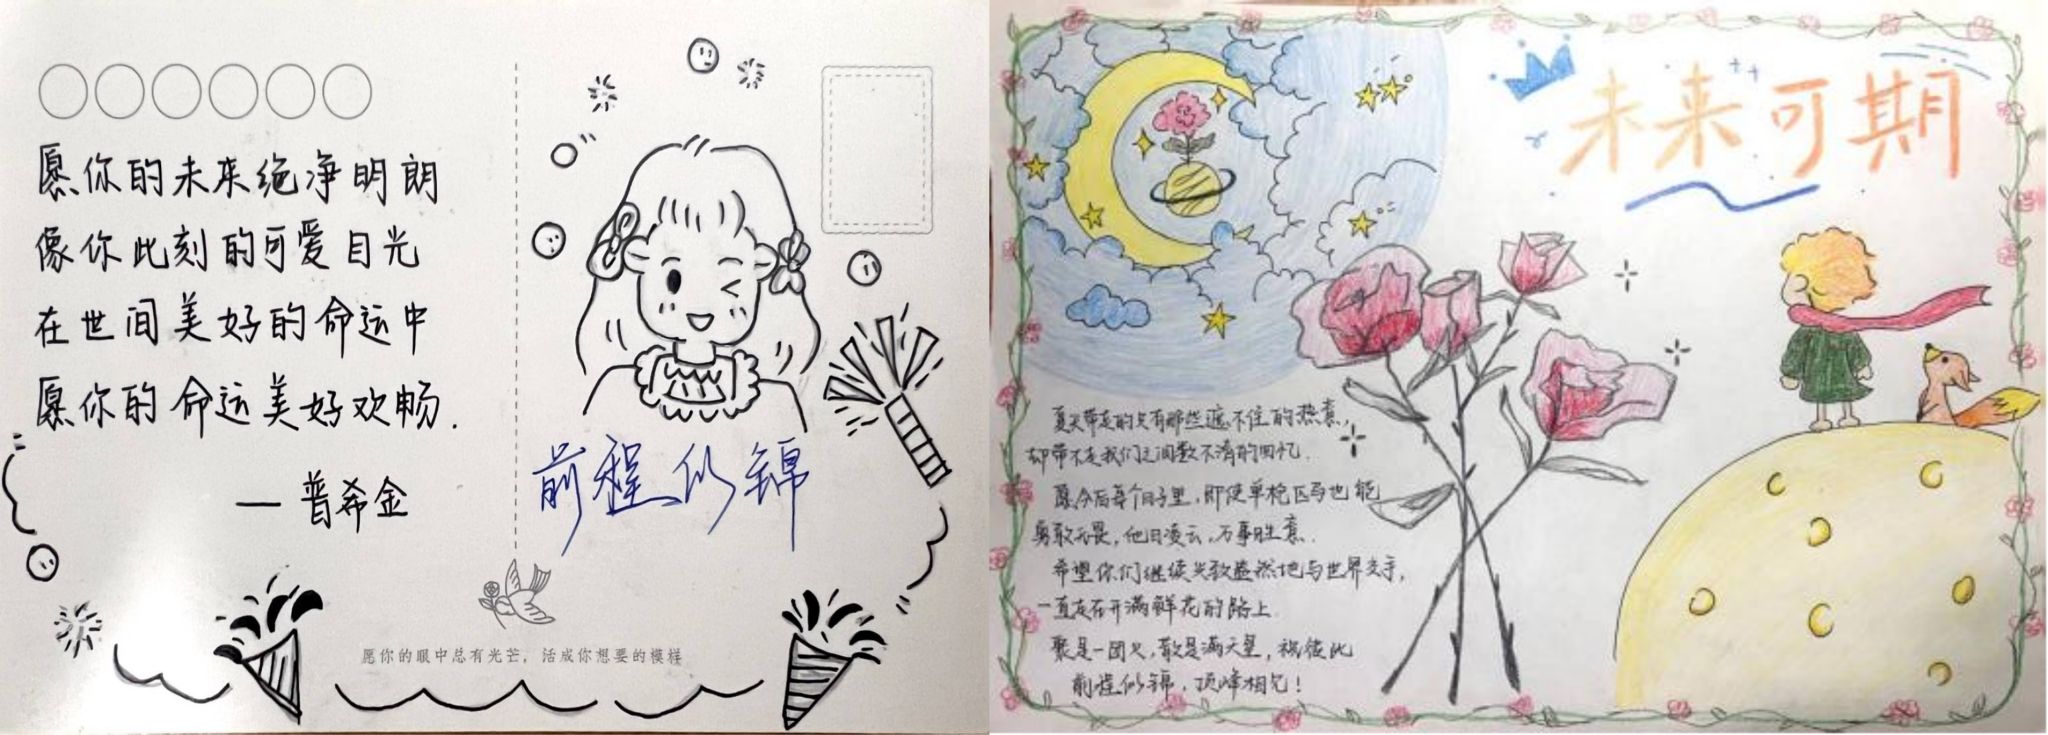 愿你的未来绝净明朗
像你此刻的可爱目光
在世间美好的命运中
愿你的命运美好欢畅.
— 普希金
前程似锦
愿你的眼中总有光芒，活成你想要的模样
未来可期
夏天带走的只有那些遮不住的热意，
却带不走我们之间数不清的回忆.
愿今后每个日子里，即使单枪匹马也能
勇敢无畏，他日凌云，万事胜意.
希望你们继续兴致盎然地与世界交手，
一直走在开满鲜花的路上.
聚是一团火，散是满天星，祝彼此
前程似锦，顶峰相见！